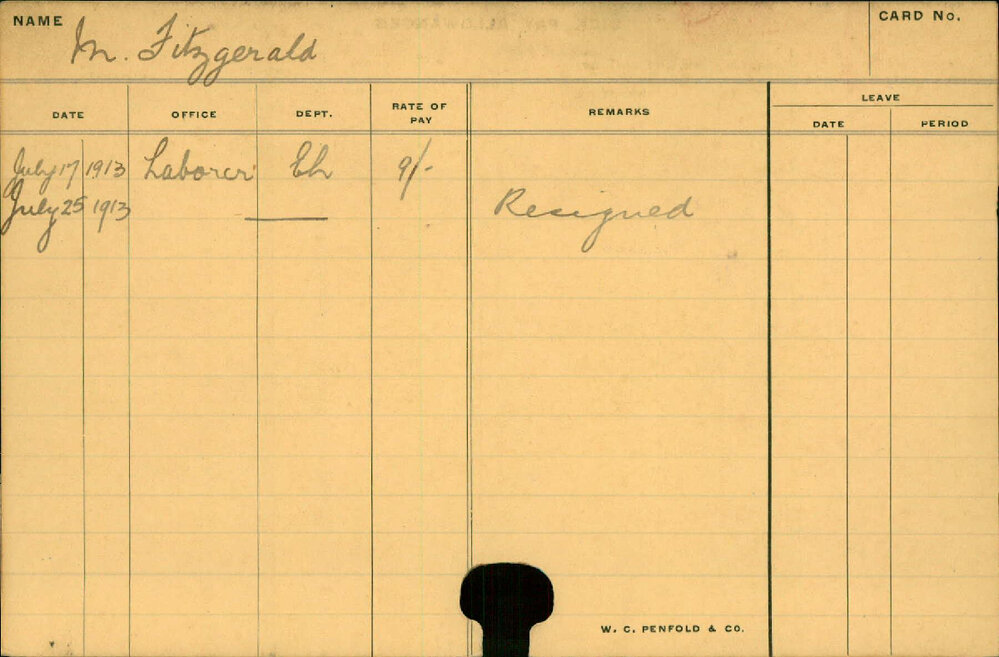 NAME M. Fitzgerald CARD No.
DATE OFFICE DEPT. RATE OF PAY REMARKS LEAVE
DATE PERIOD
July 17 1913 Laborer 9/-
July 25 1913 —— Resigned
W. C. PENFOLD & CO.